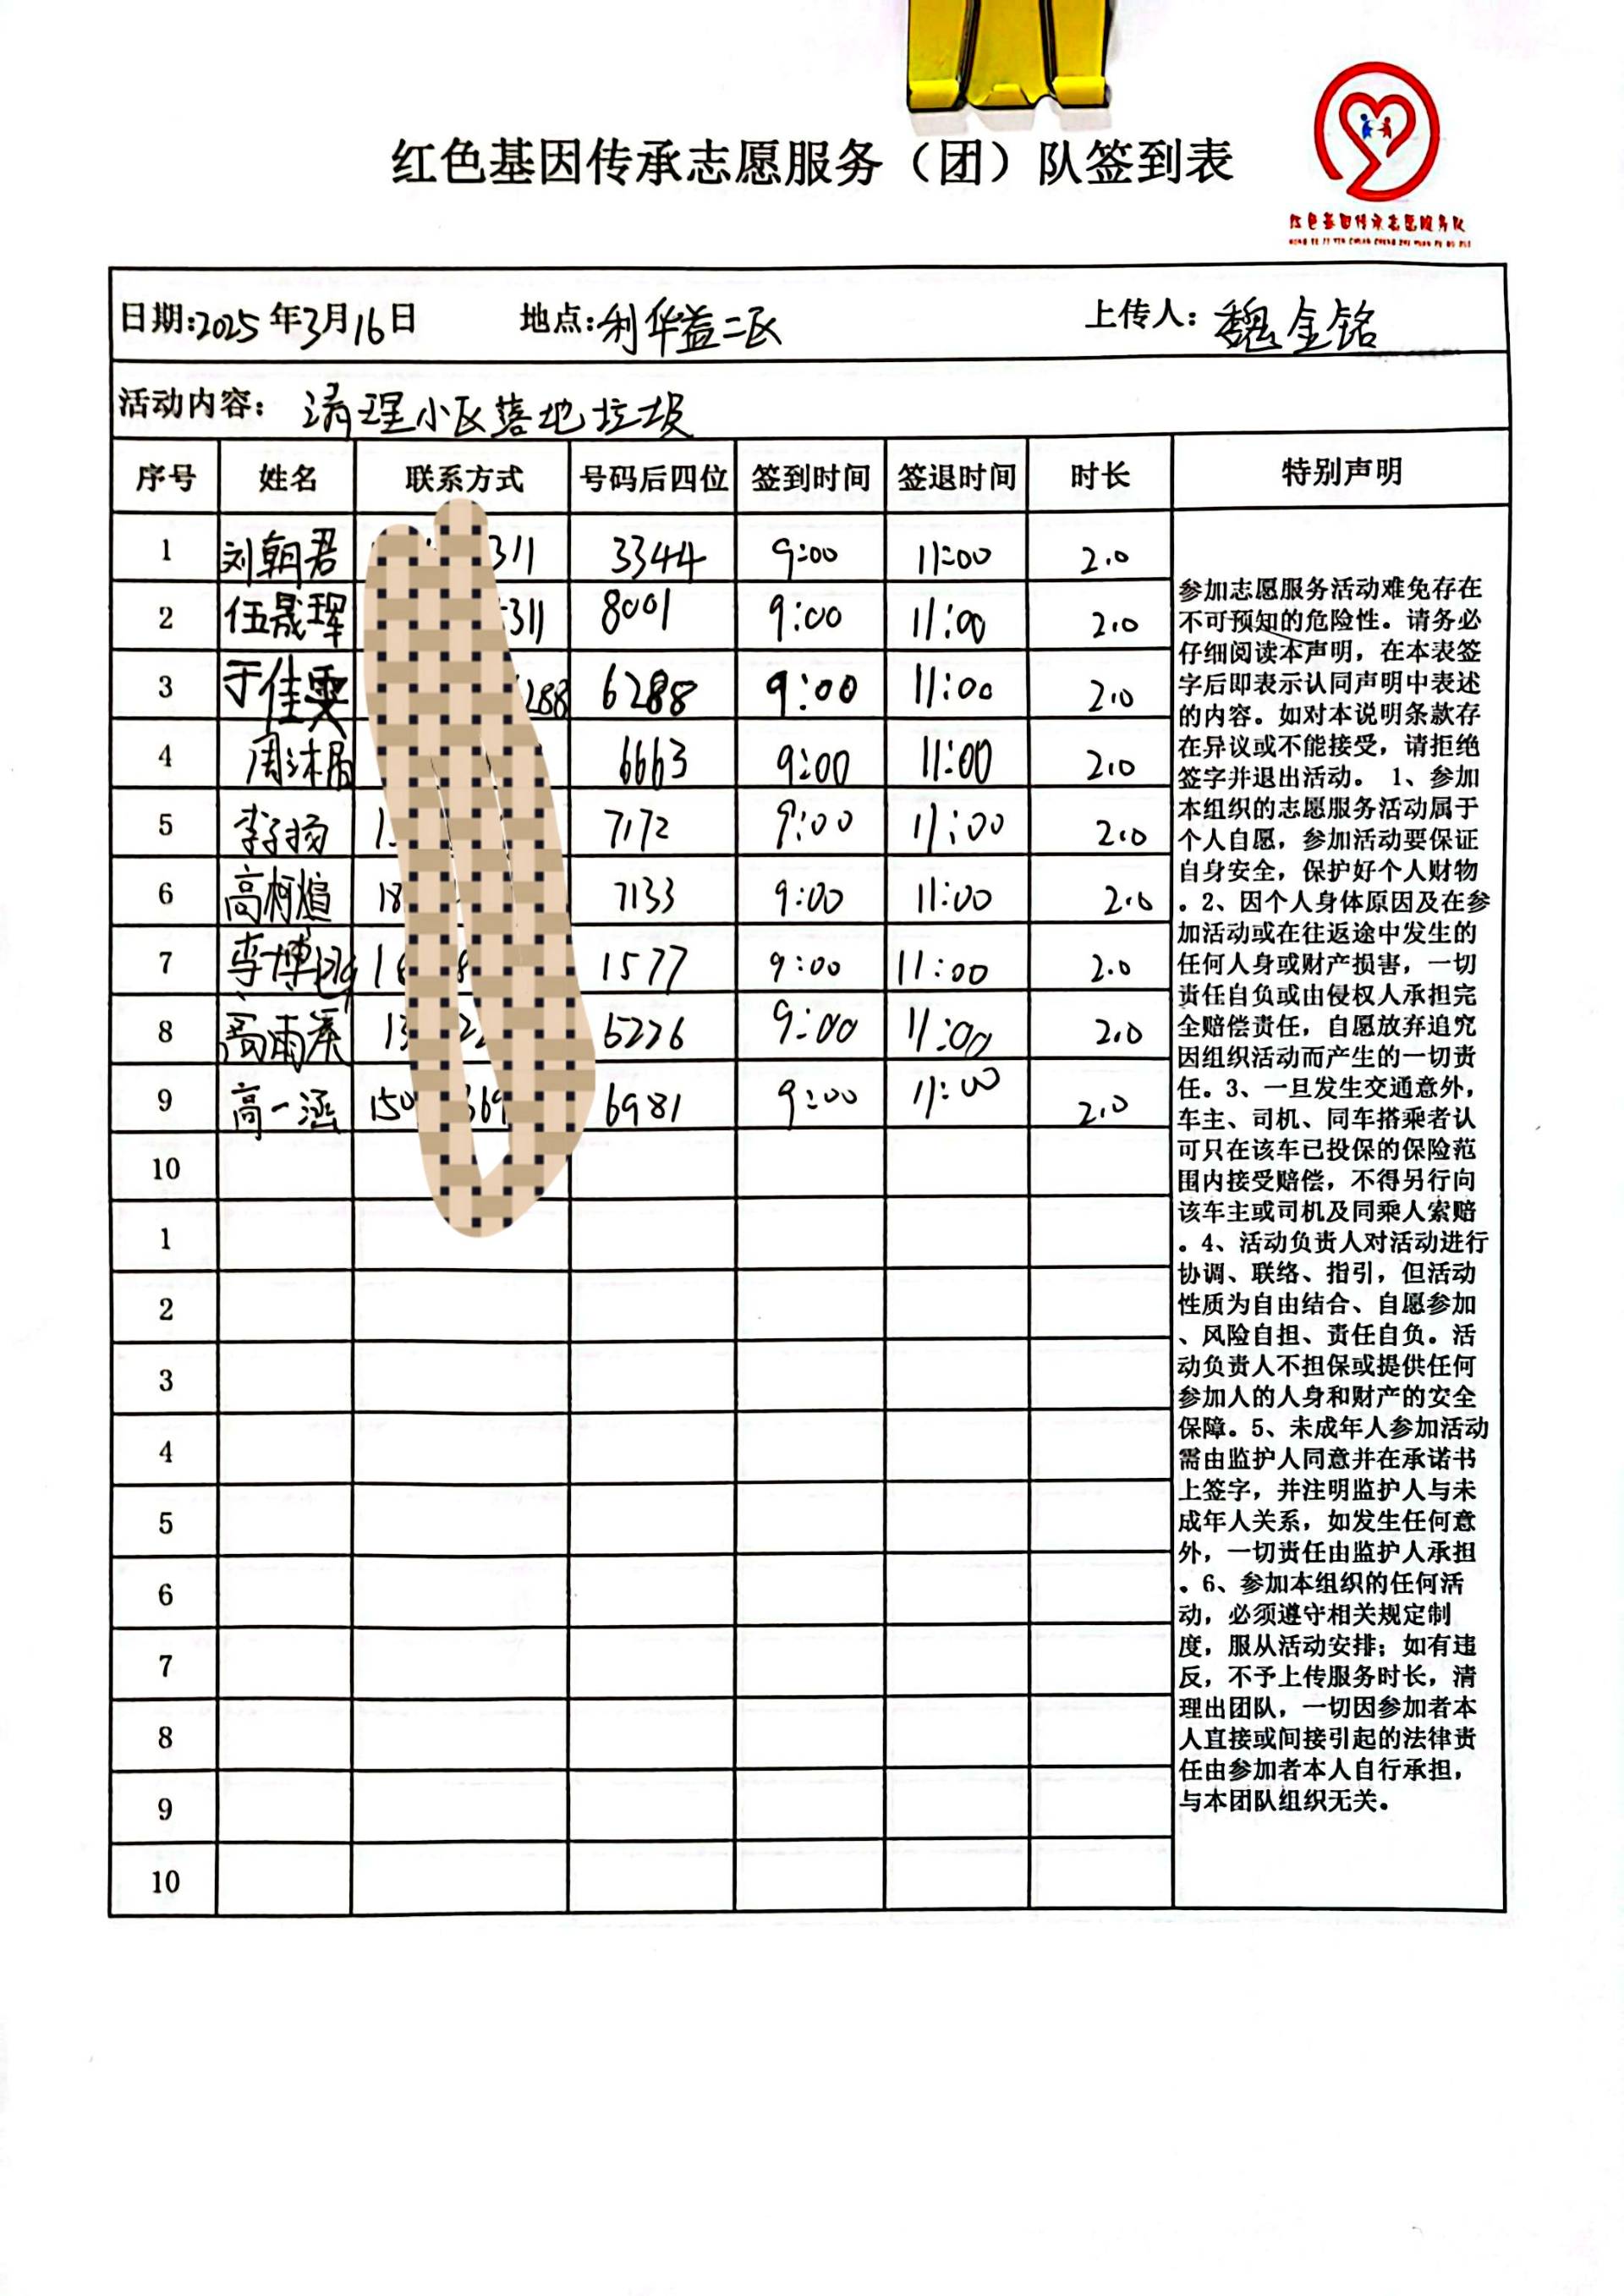 红色基因传承志愿服务（团）队签到表
红色基因传承志愿服务队
HONG SE JI YIN CHUAN CHENG ZHI YUAN FU WU DUI
日期:2025年3月16日 地点:利华益二区 上传人：魏金铭
活动内容：清理小区落地垃圾
序号 姓名 联系方式 号码后四位 签到时间 签退时间 时长 特别声明
1 刘朝君 311 3344 9:00 11:00 2.0
2 伍晟珲 311 8001 9:00 11:00 2.0
3 于佳雯 288 6288 9:00 11:00 2.0
4 周沐 6663 9:00 11:00 2.0
5 李子扬 1 7172 9:00 11:00 2.0
6 高柯煊 18 7133 9:00 11:00 2.0
7 李博 1 1577 9:00 11:00 2.0
8 高雨溪 13 6226 9:00 11:00 2.0
9 高一涵 150 369 6981 9:00 11:00 2.0
10
1
2
3
4
5
6
7
8
9
10
参加志愿服务活动难免存在
不可预知的危险性。请务必
仔细阅读本声明，在本表签
字后即表示认同声明中表述
的内容。如对本说明条款存
在异议或不能接受，请拒绝
签字并退出活动。 1、参加
本组织的志愿服务活动属于
个人自愿，参加活动要保证
自身安全，保护好个人财物
。2、因个人身体原因及在参
加活动或在往返途中发生的
任何人身或财产损害，一切
责任自负或由侵权人承担完
全赔偿责任，自愿放弃追究
因组织活动而产生的一切责
任。3、一旦发生交通意外，
车主、司机、同车搭乘者认
可只在该车已投保的保险范
围内接受赔偿，不得另行向
该车主或司机及同乘人索赔
。4、活动负责人对活动进行
协调、联络、指引，但活动
性质为自由结合、自愿参加
、风险自担、责任自负。活
动负责人不担保或提供任何
参加人的人身和财产的安全
保障。5、未成年人参加活动
需由监护人同意并在承诺书
上签字，并注明监护人与未
成年人关系，如发生任何意
外，一切责任由监护人承担
。6、参加本组织的任何活
动，必须遵守相关规定制
度，服从活动安排；如有违
反，不予上传服务时长，清
理出团队，一切因参加者本
人直接或间接引起的法律责
任由参加者本人自行承担，
与本团队组织无关。